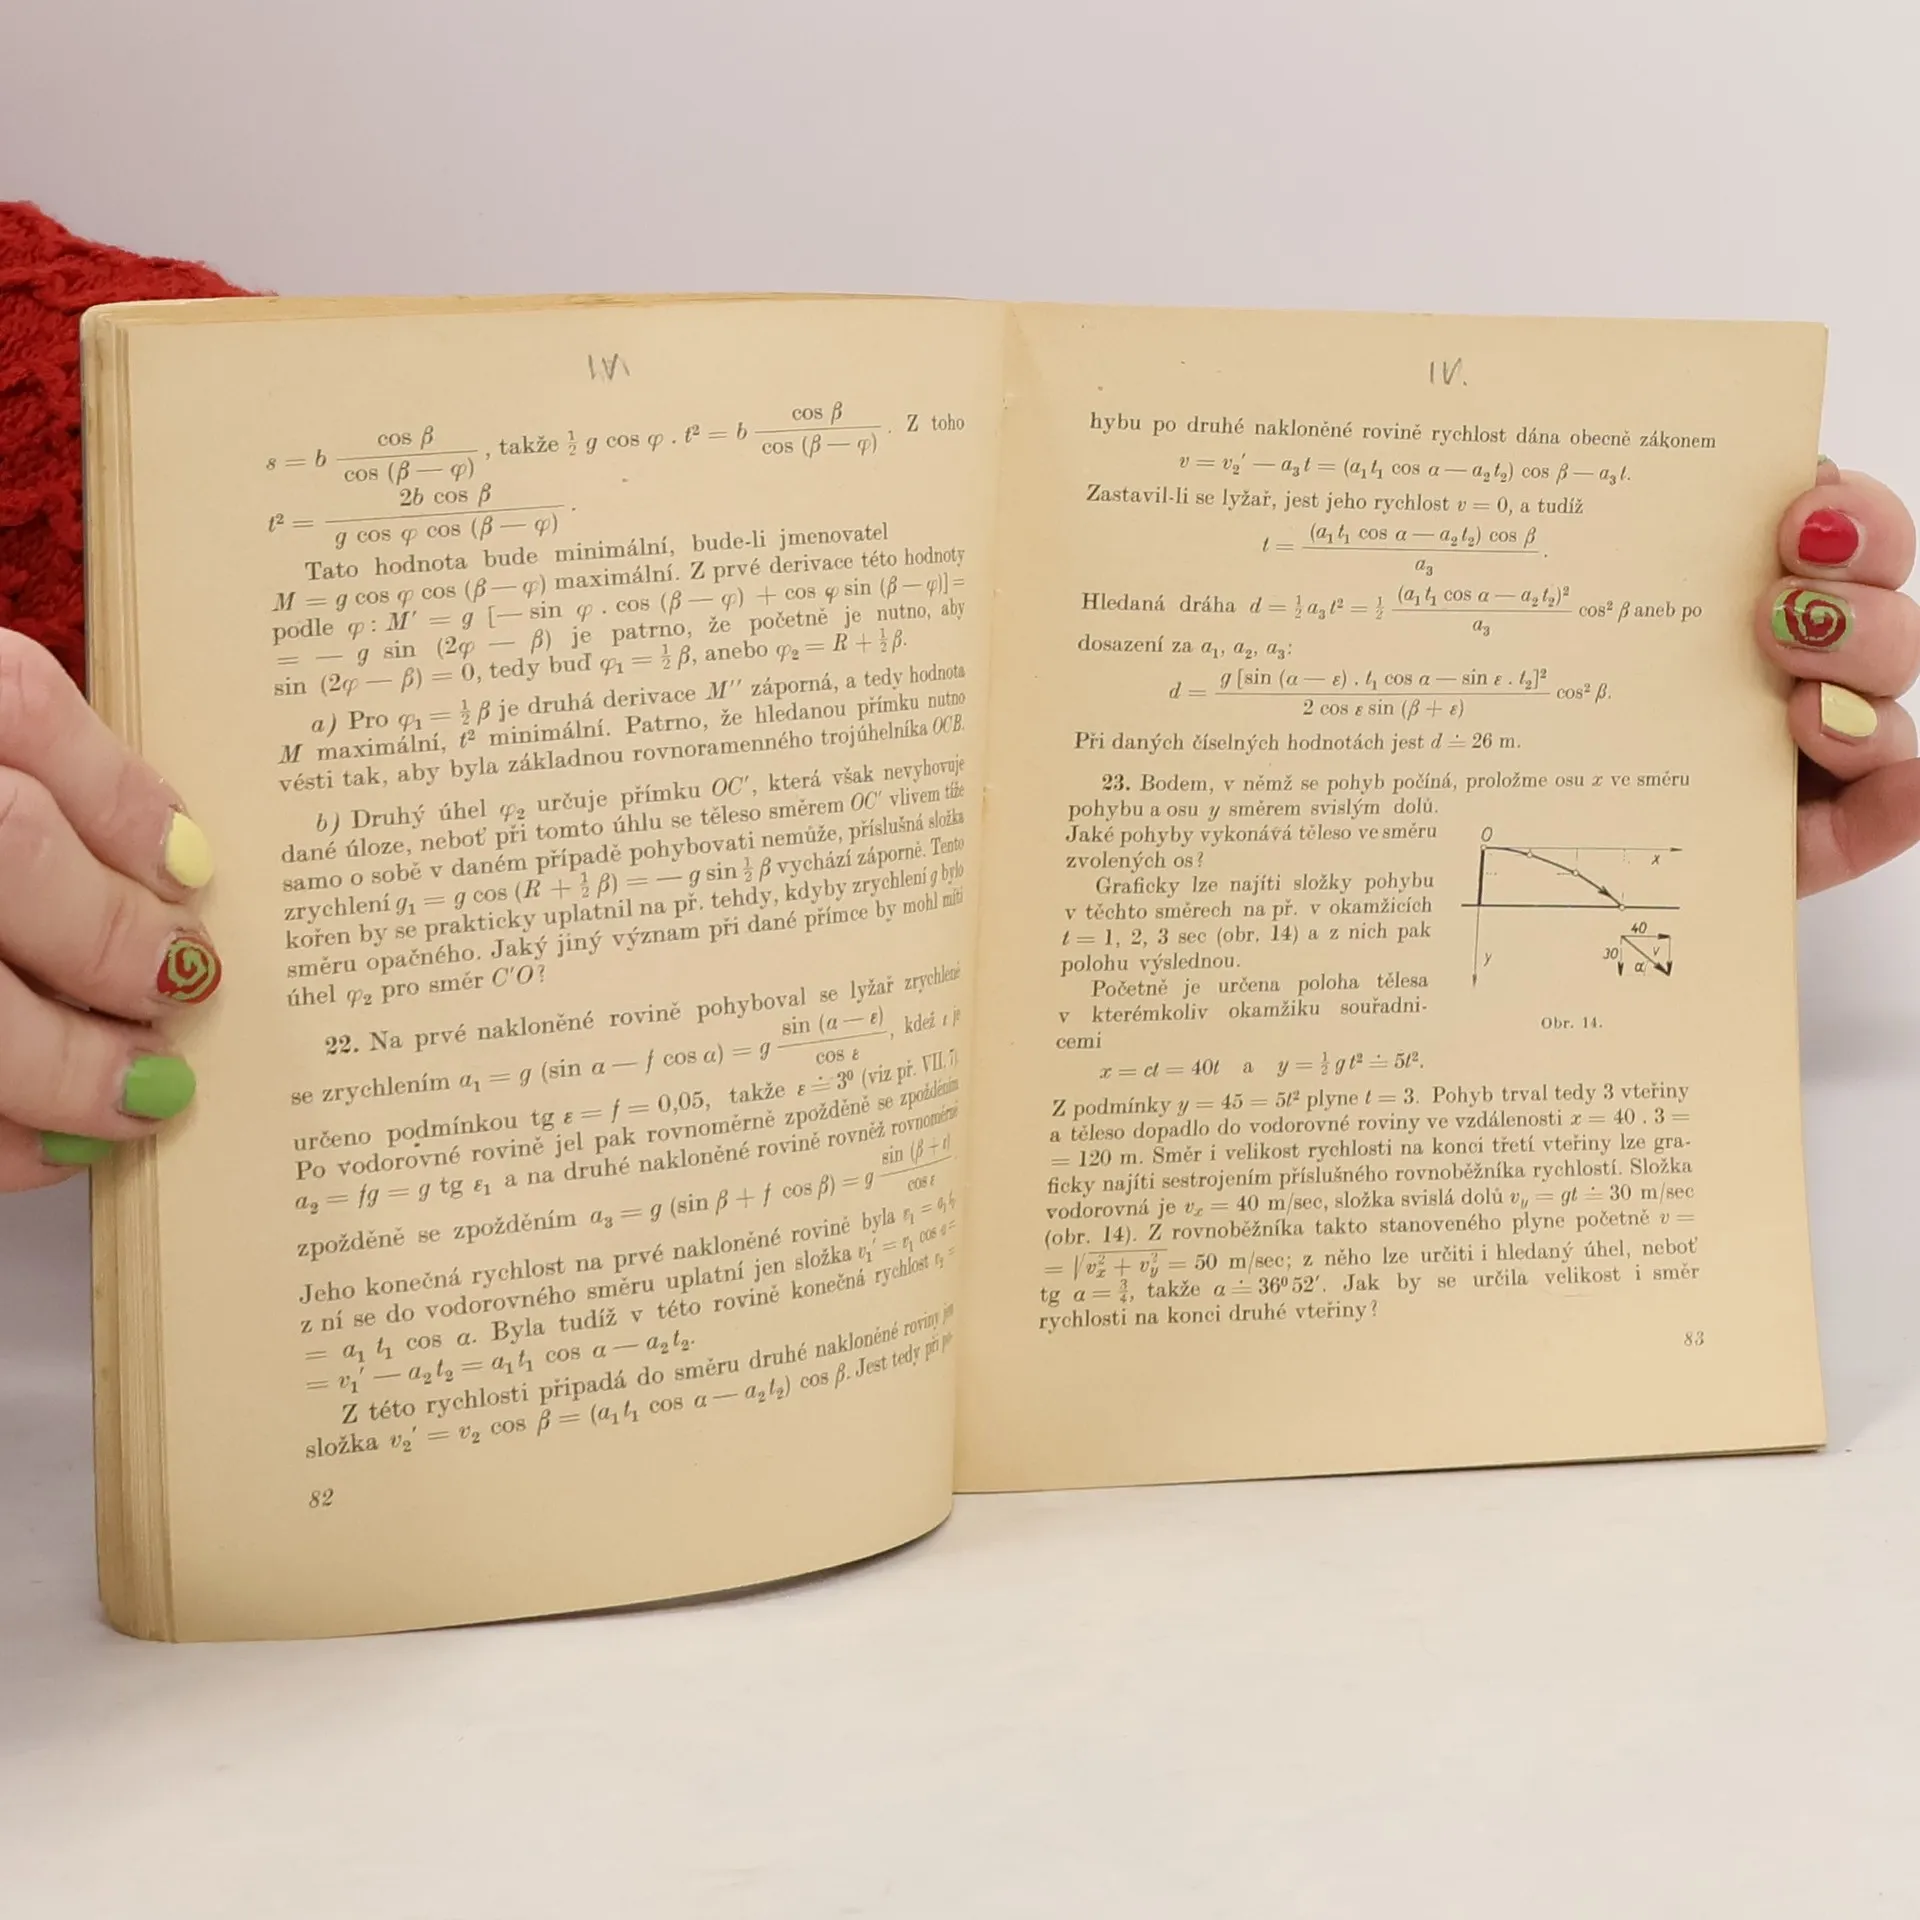 IV.
s = b cos β / cos (β — φ), takže ½ g cos φ . t² = b cos β / cos (β — φ). Z toho
t² = 2b cos β / g cos φ cos (β — φ).
Tato hodnota bude minimální, bude-li jmenovatel
M = g cos φ cos (β — φ) maximální. Z prvé derivace této hodnoty
podle φ : M′ = g [— sin φ . cos (β — φ) + cos φ sin (β — φ)] =
= — g sin (2φ — β) je patrno, že početně je nutno, aby
sin (2φ — β) = 0, tedy buď φ₁ = ½ β, anebo φ₂ = R + ½ β.
a) Pro φ₁ = ½ β je druhá derivace M″ záporná, a tedy hodnota
M maximální, t² minimální. Patrno, že hledanou přímku nutno
vésti tak, aby byla základnou rovnoramenného trojúhelníka OCB.
b) Druhý úhel φ₂ určuje přímku OC′, která však nevyhovuje
dané úloze, neboť při tomto úhlu se těleso směrem OC′ vlivem tíže
samo o sobě v daném případě pohybovati nemůže, příslušná složka
zrychlení g₁ = g cos (R + ½ β) = — g sin ½ β vychází záporně. Tento
kořen by se prakticky uplatnil na př. tehdy, kdyby zrychlení g bylo
směru opačného. Jaký jiný význam při dané přímce by mohl míti
úhel φ₂ pro směr C′O?
22. Na prvé nakloněné rovině pohyboval se lyžař zrychleně
se zrychlením a₁ = g (sin α — f cos α) = g sin (α — ε) / cos ε, kdež ε je
určeno podmínkou tg ε = f = 0,05, takže ε ≐ 3⁰ (viz př. VII, 7).
Po vodorovné rovině jel pak rovnoměrně zpožděně se zpožděním
a₂ = fg = g tg ε₁ a na druhé nakloněné rovině rovněž rovnoměrně
zpožděně se zpožděním a₃ = g (sin β + f cos β) = g sin (β + ε) / cos ε
Jeho konečná rychlost na prvé nakloněné rovině byla v₁ = a₁t₁
z ní se do vodorovného směru uplatní jen složka v₁′ = v₁ cos α =
= a₁ t₁ cos α. Byla tudíž v této rovině konečná rychlost v₂ =
= v₁′ — a₂t₂ = a₁t₁ cos α — a₂t₂.
Z této rychlosti připadá do směru druhé nakloněné roviny jen
složka v₂′ = v₂ cos β = (a₁t₁ cos α — a₂t₂) cos β. Jest tedy při po-
82
IV.
hybu po druhé nakloněné rovině rychlost dána obecně zákonem
v = v₂′ — a₃t = (a₁t₁ cos α — a₂t₂) cos β — a₃t.
Zastavil-li se lyžař, jest jeho rychlost v = 0, a tudíž
t = (a₁t₁ cos α — a₂t₂) cos β / a₃.
Hledaná dráha d = ½ a₃t² = ½ (a₁t₁ cos α — a₂t₂)² / a₃ cos² β aneb po
dosazení za a₁, a₂, a₃:
d = g [sin (α — ε) . t₁ cos α — sin ε . t₂]² / 2 cos ε sin (β + ε) cos² β.
Při daných číselných hodnotách jest d ≐ 26 m.
23. Bodem, v němž se pohyb počíná, proložme osu x ve směru
pohybu a osu y směrem svislým dolů.
Jaké pohyby vykonává těleso ve směru
zvolených os?
Graficky lze najíti složky pohybu
v těchto směrech na př. v okamžicích
t = 1, 2, 3 sec (obr. 14) a z nich pak
polohu výslednou.
Početně je určena poloha tělesa
v kterémkoliv okamžiku souřadni-
cemi
x = ct = 40t a y = ½ gt² ≐ 5t².
O
x
y
40
30
v
α
Obr. 14.
Z podmínky y = 45 = 5t² plyne t = 3. Pohyb trval tedy 3 vteřiny
a těleso dopadlo do vodorovné roviny ve vzdálenosti x = 40 . 3 =
= 120 m. Směr i velikost rychlosti na konci třetí vteřiny lze gra-
ficky najíti sestrojením příslušného rovnoběžníka rychlostí. Složka
vodorovná je vₓ = 40 m/sec, složka svislá dolů v_y = gt ≐ 30 m/sec
(obr. 14). Z rovnoběžníka takto stanoveného plyne početně v =
= √(vₓ² + v_y²) = 50 m/sec; z něho lze určiti i hledaný úhel, neboť
tg α = ¾, takže α ≐ 36⁰ 52′. Jak by se určila velikost i směr
rychlosti na konci druhé vteřiny?
83